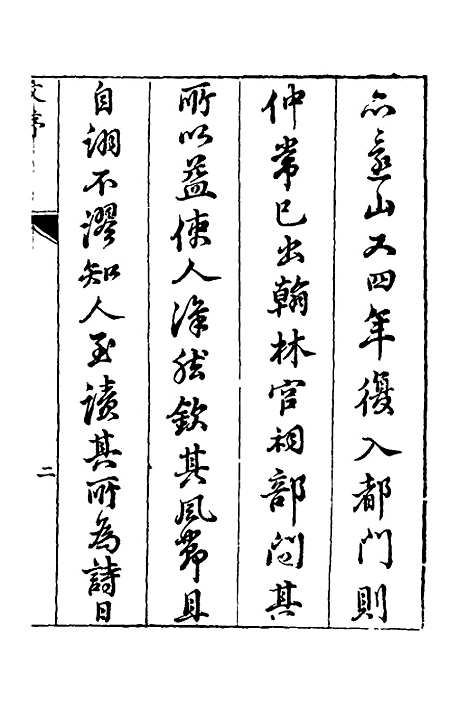 亦還山又四年復入都門則
仲常已出翰林官祠部問其
所以益使人深然欽其風節且
自詡不謬知人至讀其所為詩日
二